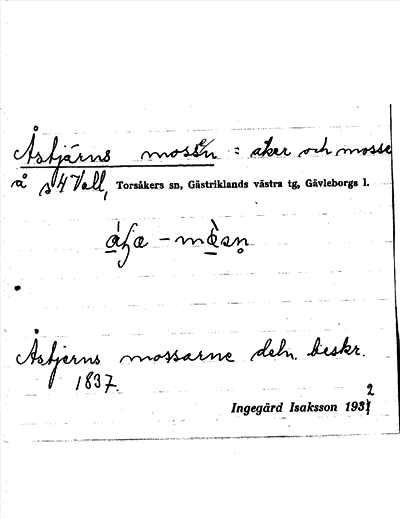 Åstjärns mossen = åker och mosse
å s 4 Vall, Torsåkers sn, Gästriklands västra tg, Gävleborgs l.
Åstjerns mossarne deln. beskr.
1837.
Ingegärd Isaksson 1932